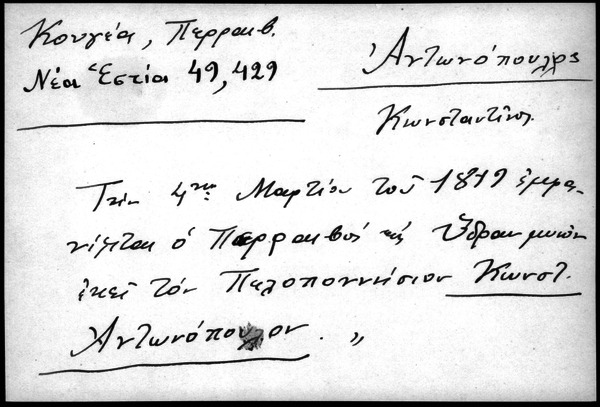 Κουγέα, Περραιβ.
Νέα Ἑστία 49, 429
Ἀντωνόπουλος
Κωνσταντῖνος
Τὴν 4ην Μαρτίου τοῦ 1819 ἐμφα-
νίζεται ὁ Περραιβὸς εἰς Ὕδραν μυῶν
ἐκεῖ τὸν Πελοποννήσιον Κωνστ.
Ἀντωνόπουλον. „